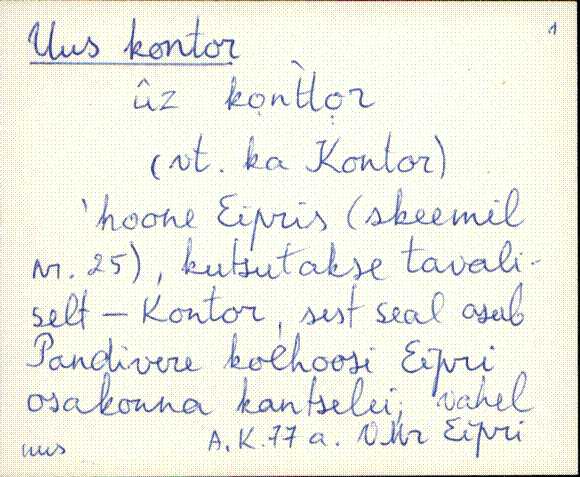 1
Uus kontor
ûz kǫntt̀ǫr
(vt. ka Kontor)
'hoone Eipris (skeemil
nr. 25), kutsutakse tavali-
selt – Kontor, sest seal asub
Pandivere kolhoosi Eipri
osakonna kantselei, vahel
uus A.K. 77 a. VMr Eipri